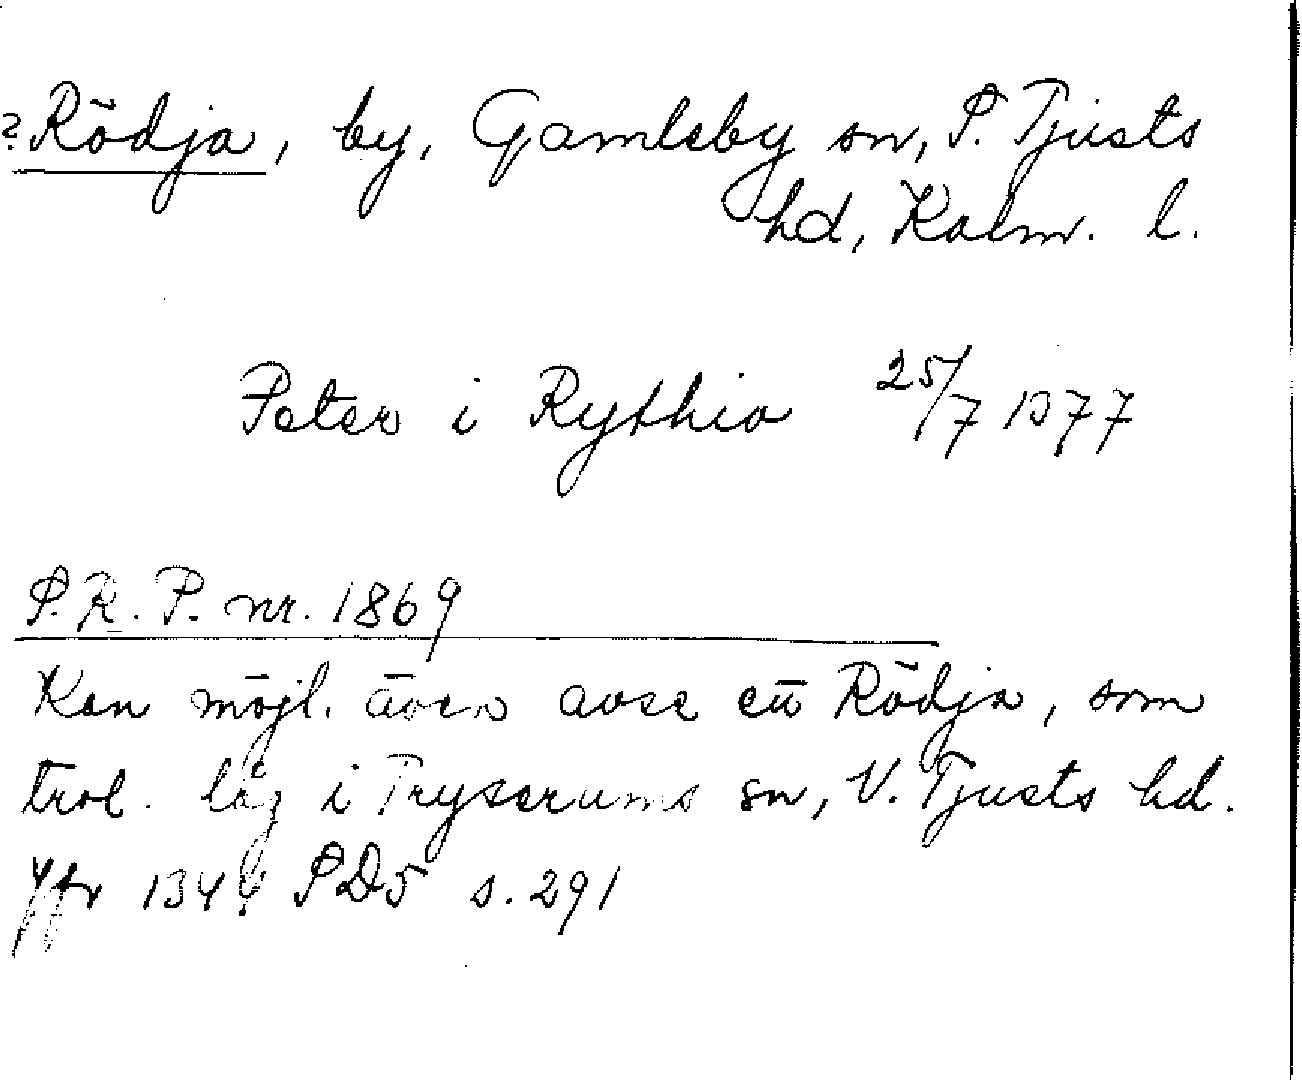 ? Rödja, by, Gamleby sn, S. Tjusts
hd, Kalm. l.
Peter i Rythio 25/7 1377
S.R.P. nr. 1869
Kan möjl. även avse ett Rödja, som
trol. låg i Tryserums sn, V. Tjusts hd.
Jfr 1344 SD5 s. 291